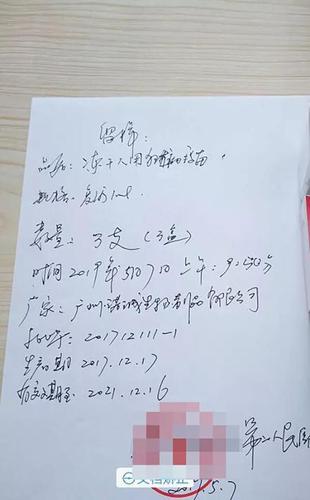 留样:
品名: 冻干人用狂犬病疫苗.
规格: 复溶1ml.
数量: 3支 (3盒)
时间 2019年5月7日 上午: 9:50分
厂家: 广州诺诚生物制品有限公司
批号: 201712111-1
生产日期 2017.12.17
有效期至 2021.12.16
第二人民医
5.7
文档矫正